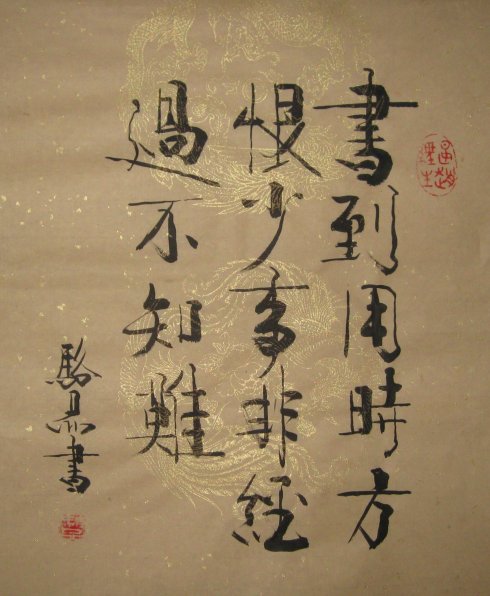 書到用時方
恨少事非經
過不知難
駱 書